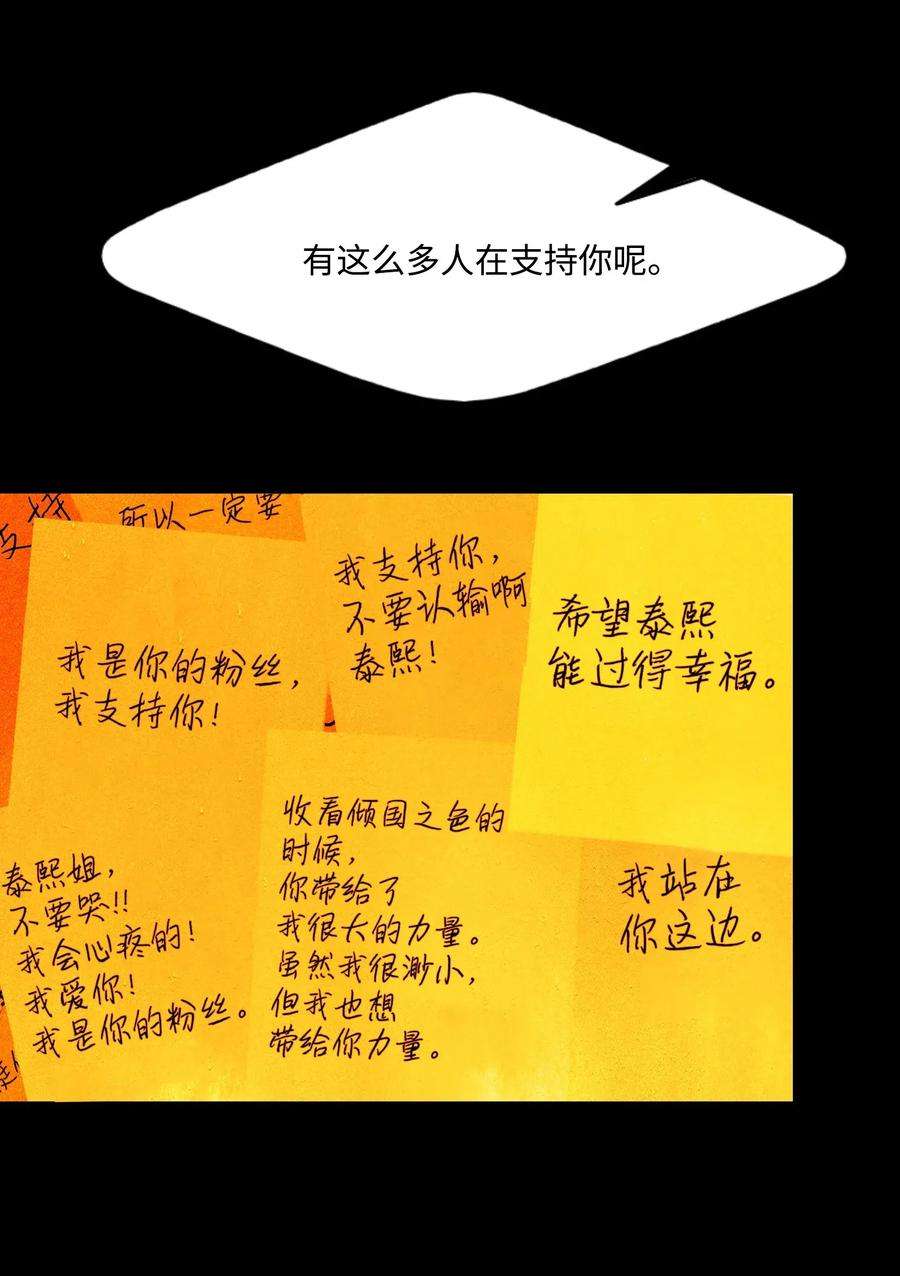 有这么多人在支持你呢。
支持
所以一定要
我支持你，
不要认输啊
泰熙！
希望泰熙
能过得幸福。
我是你的粉丝，
我支持你！
收看倾国之色的
时候，
你带给了
我很大的力量。
虽然我很渺小，
但我也想
带给你力量。
我站在
你这边。
泰熙姐，
不要哭!!
我会心疼的！
我爱你！
我是你的粉丝。